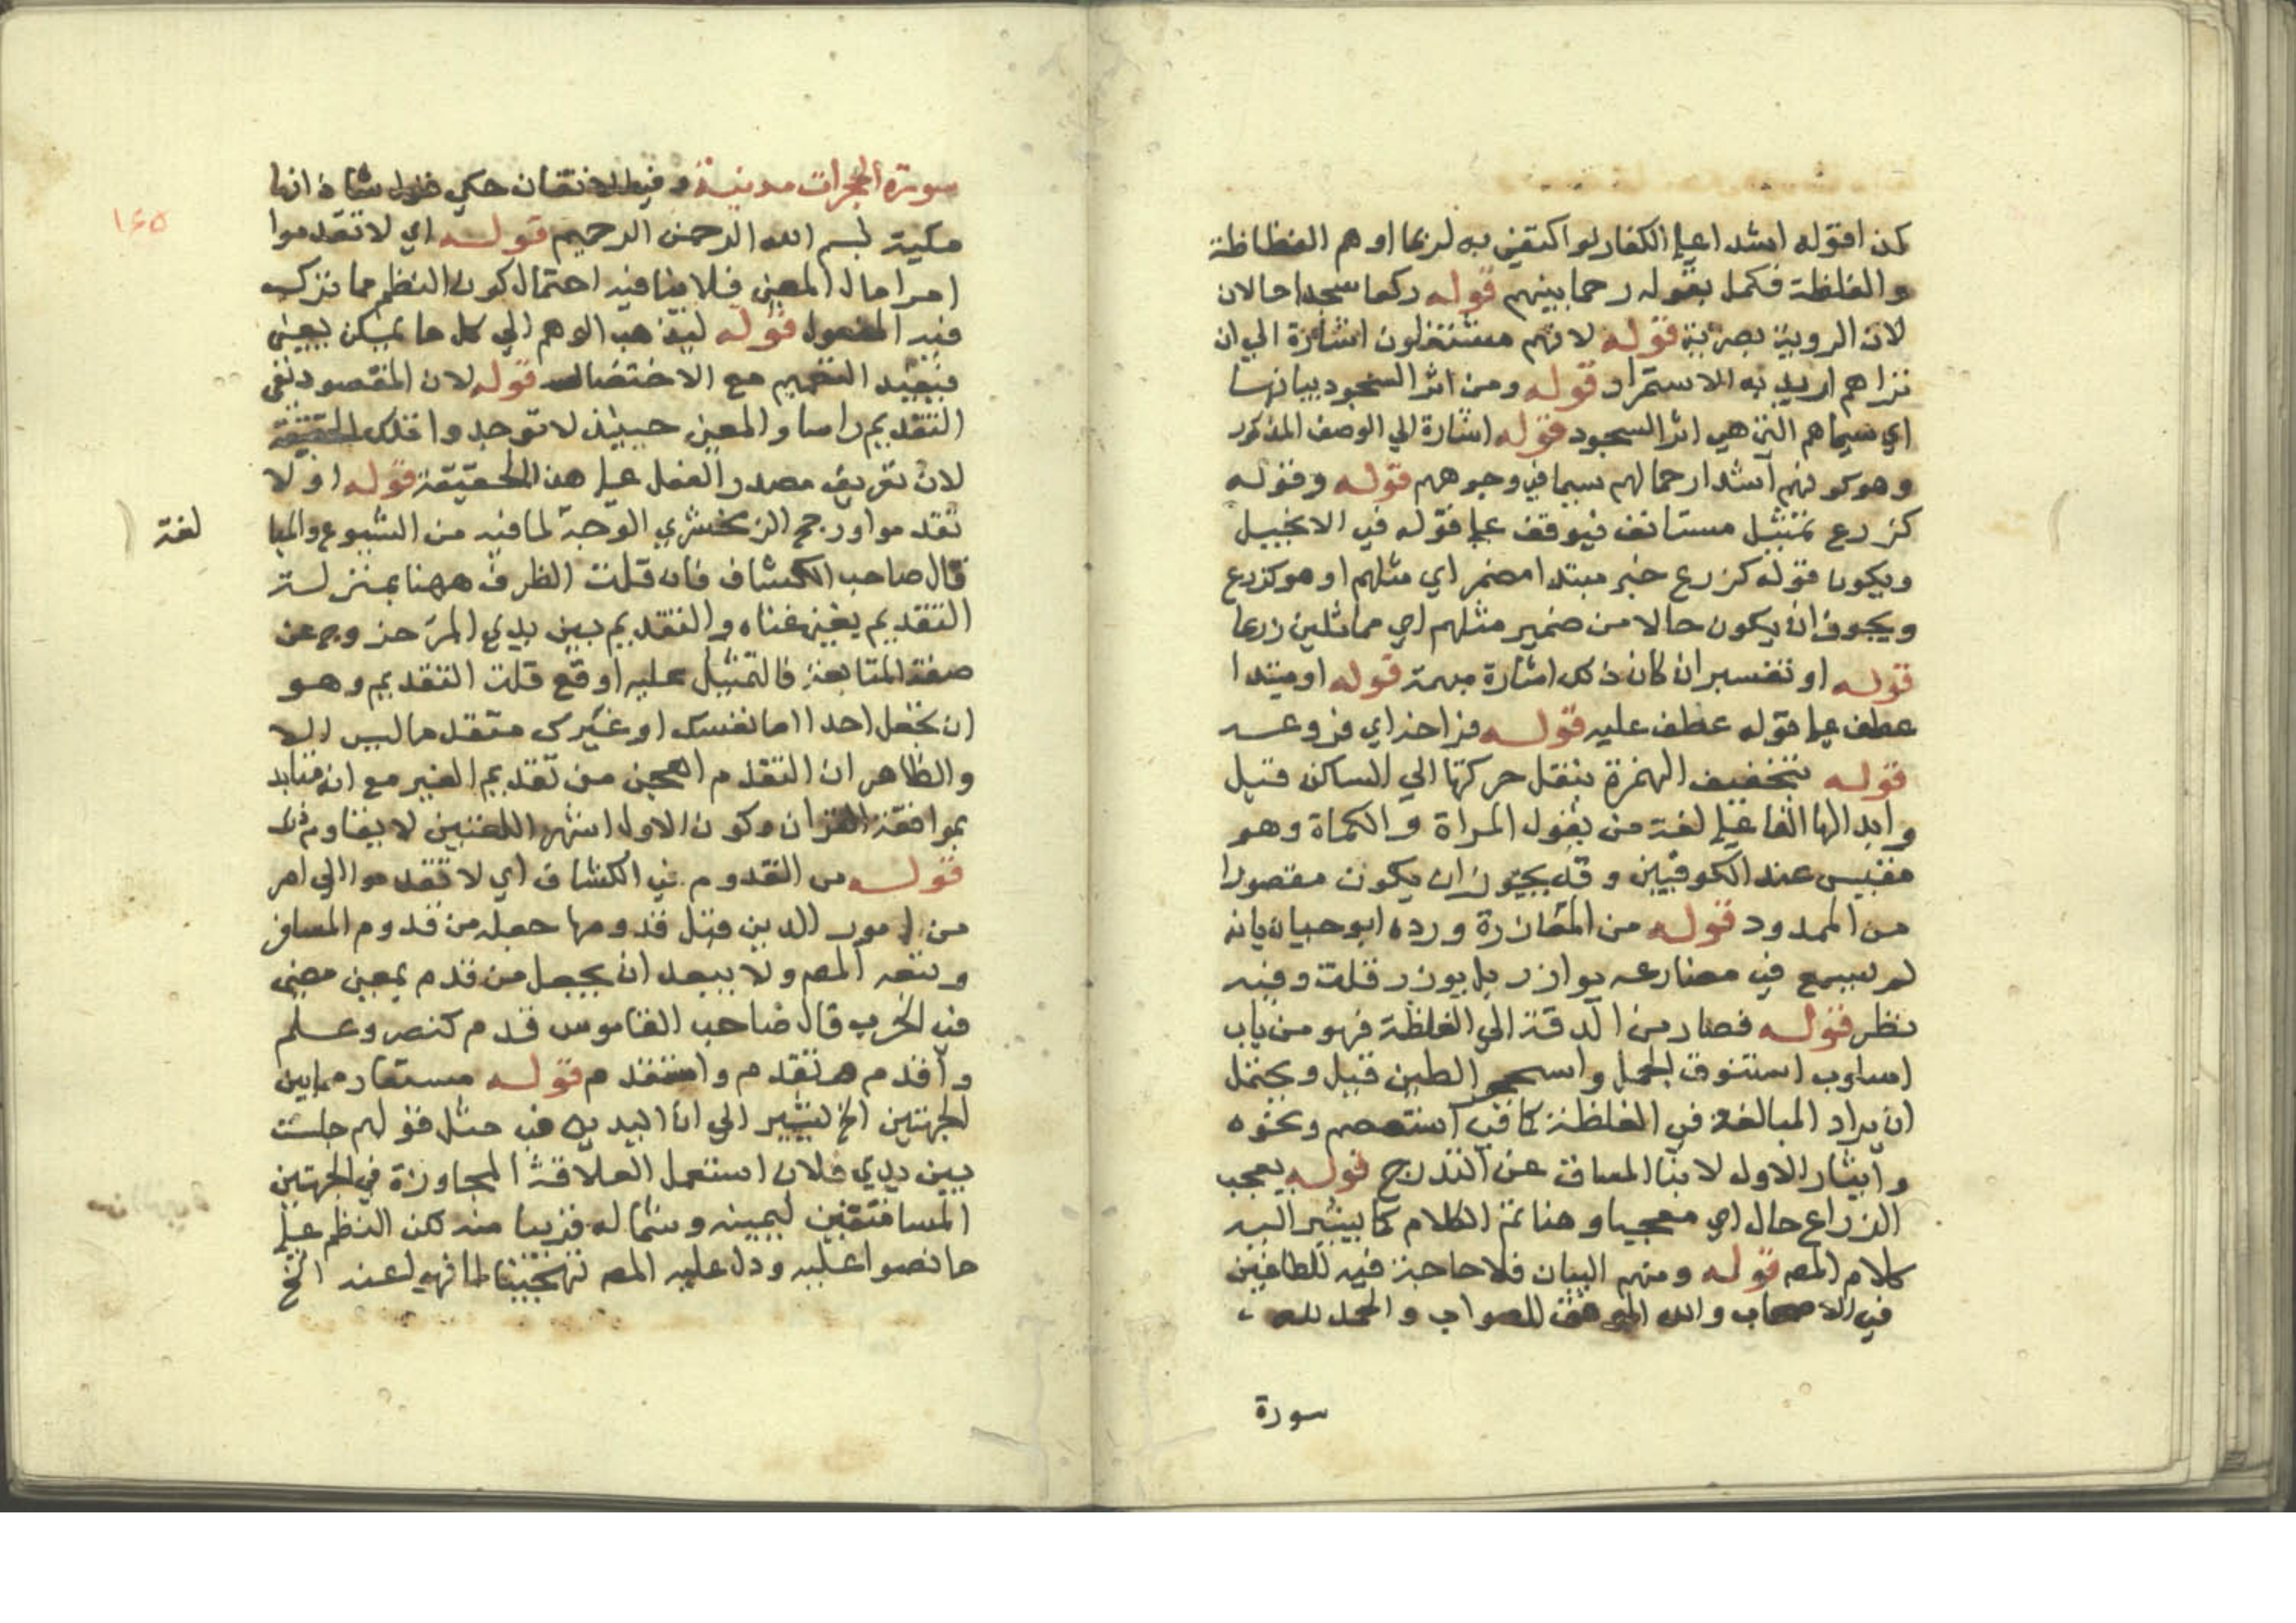 كذا قوله اشداء على الكفار لو اكتفى به لربما اوهم الفظاظة
والغلظة فكمل بقوله رحما بينهم قوله ركعا سجدا حالان
لان الروية بصرية قوله لانهم مشتغلون اشارة الي ان
تراهم اريد به الاستمرار قوله ومن اثر السجود بيانها
اي سيماهم التي هي اثر السجود قوله اشارة الي الوصف المذكور
وهو كونهم اشدا رحما لهم سيما في وجوههم قوله وقوله
كزرع تمثيل مستانف فيوقف على قوله في الانجيل
ويكون قوله كزرع خبر مبتدا مضمر اي مثلهم او هو كزرع
ويجوز ان يكون حالا من ضمير مثلهم اي مماثلين زرعا
قوله او تفسير ان كان ذلك اشارة مبهمة قوله او مبتدا
عطف على قوله عطف عليه قوله فراخه اي فروعه
قوله بتخفيف الهمزة بنقل حركتها الي الساكن قبل
وابدالها الفا على لغة من يقول المراة والكماة وهو
مقيس عند الكوفيين وقد يجوز ان يكون مقصورا
من الممدود قوله من المؤازرة ورده ابو حيان بانه
لم يسمع في مضارعه يوازر بل يوزر قلت وفيه
نظر قوله فصار من الدقة الي الغلظة فهو من باب
اسلوب استنوق الجمل واستحجر الطين قيل ويحتمل
ان يراد المبالغة في الغلظة كما في استعصم ونحوه
وايثار الاول لابنا المساق عن التدرج قوله يعجب
الزراع حال اي معجبا وهنا تم الكلام كما يشير اليه
كلام المص قوله ومنهم البيان فلا حاجة فيه للطاعنين
في الاصحاب والله الموفق للصواب والحمد لله
سورة
سورة الحجرات مدنية وفي الاتقان حكي قول شاذ انها
مكية بسم الله الرحمن الرحيم قوله اي لا تقدموا
امرا مال المعنى فلا ينافيه احتمال كون النظم مما ترك
فيه المفعول قوله ليذهب الوهم الي كل ما يمكن يعني
فيفيد التعميم مع الاختصار قوله لان المقصود نفي
التقديم راسا والمعنى حينئذ لا توجدوا تلك الحقيقة
لان تعريف مصدر الفعل على هذا الحقيقة قوله او لا
تقدموا ورجح الزمخشري الوجه لما فيه من الشيوع والمبا
لغة
قال صاحب الكشاف فان قلت الظرف ههنا بمنزلة
التقديم يغني غناه والتقديم بين يدي المرء خروج عن
صفة المتابعة فالتمثيل عليه اوقع قلت التقديم وهو
ان تجعل احدا اما نفسك او غيرك متقدما ليس الا
والظاهر ان التقدم اهجن من تقديم الغير مع ان متايد
بموافقة القران وكون الاول اشهر اللغتين لا يقاوم ذلك
قوله من القدوم في الكشاف اي لا تقدموا الي امر
من امور الدين قبل قدومها جعله من قدوم المسافر
وتبعه المص ولا يبعد ان يجعل من قدم بمعنى مضى
في الحرب قال صاحب القاموس قدم كنصر وعلم
واقدم وتقدم واستقدم قوله مستعار مما بين
الجهتين الخ ليشير الي ان اليدين في مثل قولهم جلست
بين يدي فلان استعمل لعلاقة المجاورة في الجهتين
المسامتتين ليمينه وشماله قريبا منه لكن النظم على
ما نصوا عليه ودل عليه المص تهجينا لما نهوا عنه الخ
١٦٥